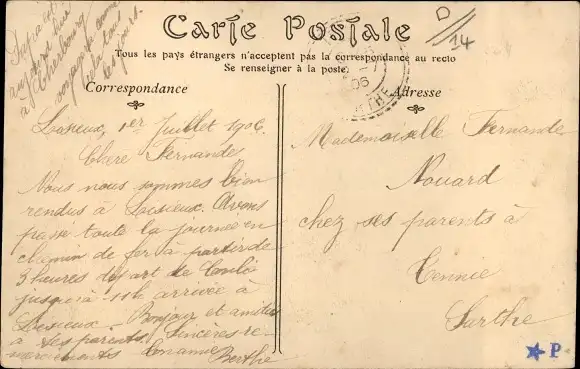 Carte Postale
D/14
Tous les pays étrangers n'acceptent pas la correspondance au recto
Se renseigner à la poste.
Correspondance
Lisieux, 1er Juillet 1906
Chère Fernande
Nous nous sommes bien
rendus à Lisieux. Avons
passe toute la journée en
chemin de fer à partir de
3 heures départ de
jusqu'à 10h arrivée à
Lisieux. Bonjour et amitiés
à tes parents Sincères re-
merciements Ton amie
Berthe
à Cherbourg
06
SARTHE
Adresse
Mademoiselle Fernande
Nouard
chez ses parents à
Tennie
Sarthe
P